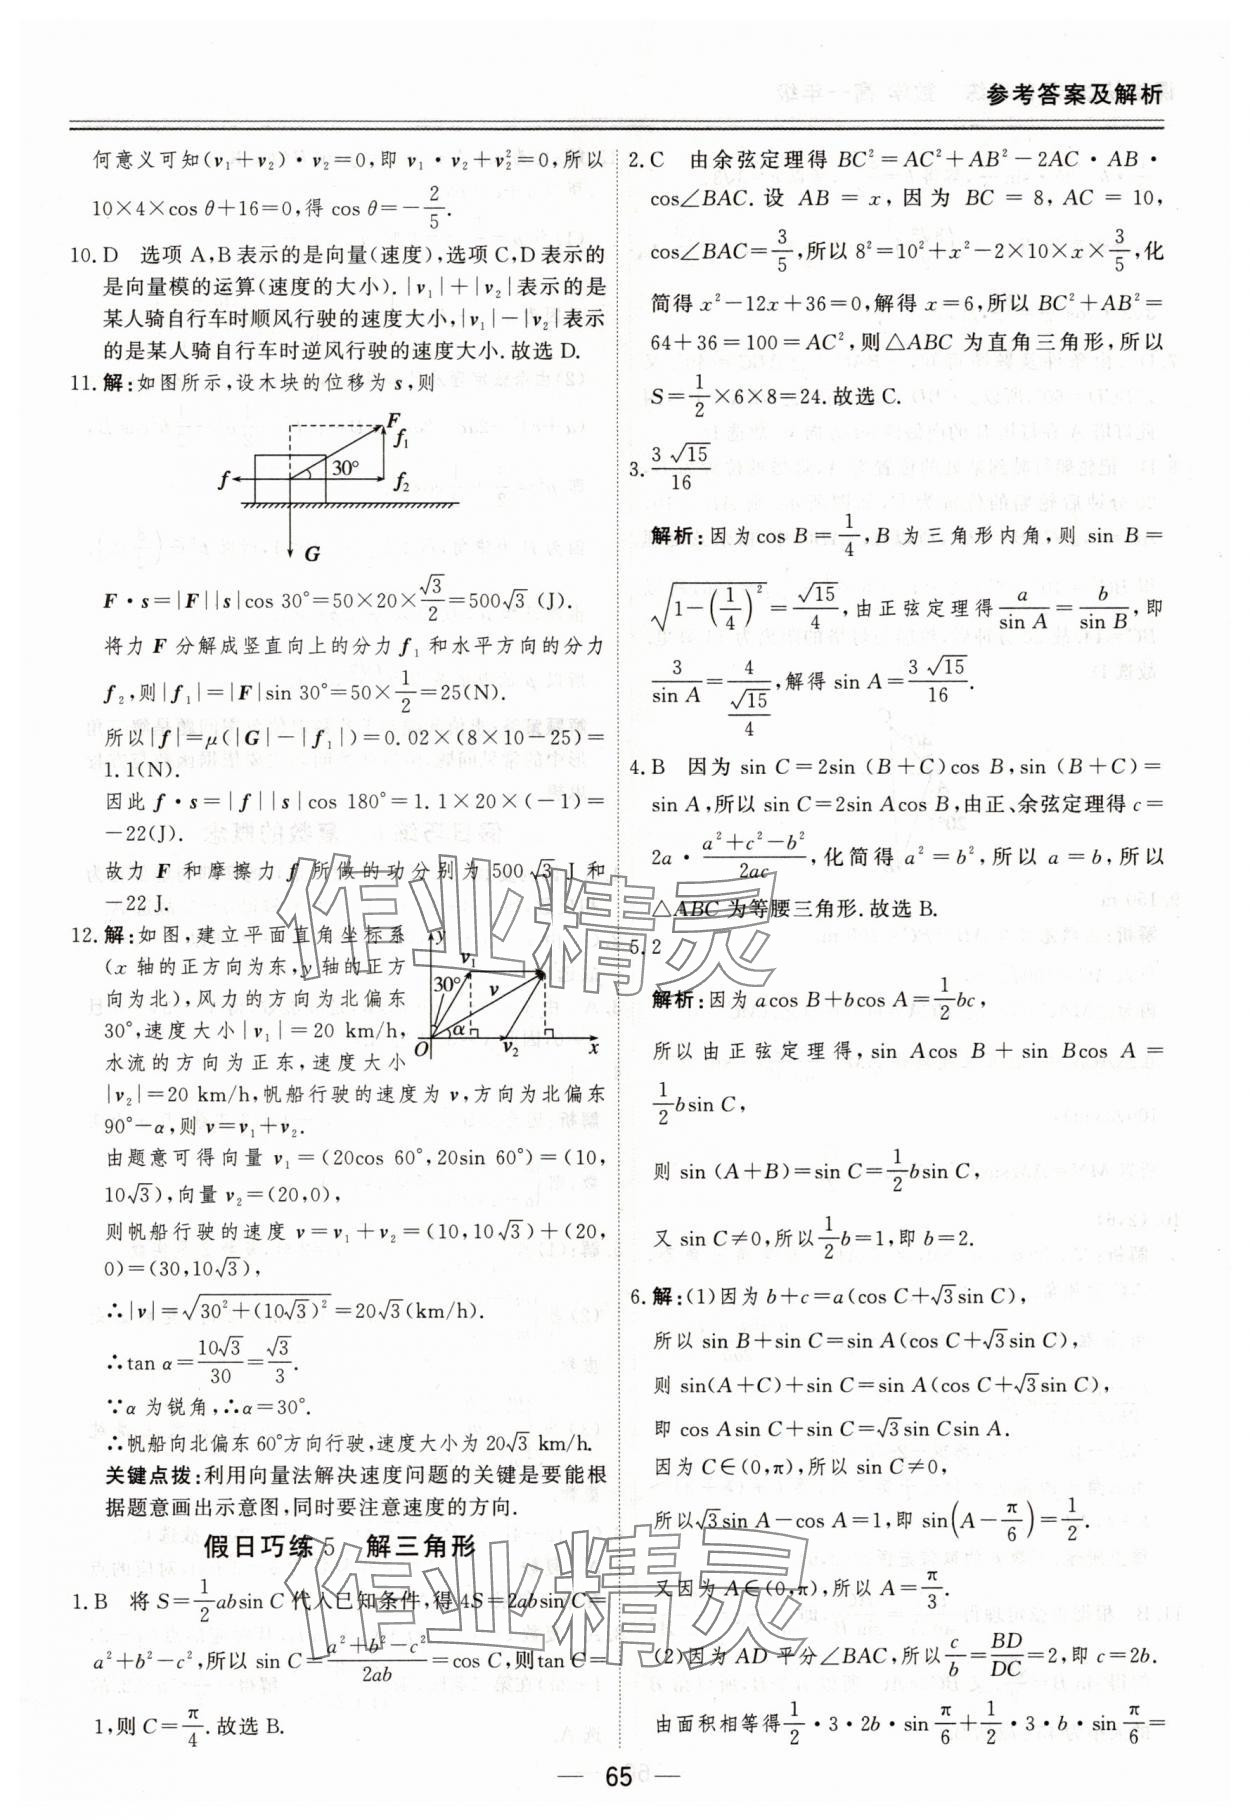 参考答案及解析
何意义可知(v₁+v₂)·v₂=0,即 v₁·v₂+v₂²=0,所以
10×4×cos θ+16=0,得 cos θ=-2/5.
10. D 选项 A,B表示的是向量(速度),选项 C,D表示的
是向量模的运算(速度的大小).|v₁|+|v₂|表示的是
某人骑自行车时顺风行驶的速度大小,|v₁|-|v₂|表示
的是某人骑自行车时逆风行驶的速度大小.故选 D.
11. 解:如图所示,设木块的位移为 s,则
F
f₁
30°
f
f₂
G
F·s=|F||s|cos 30°=50×20×√3/2=500√3 (J).
将力 F 分解成竖直向上的分力 f₁ 和水平方向的分力
f₂,则|f₁|=|F|sin 30°=50×1/2=25(N).
所以|f|=μ(|G|-|f₁|)=0.02×(8×10-25)=
1.1(N).
因此 f·s=|f||s|cos 180°=1.1×20×(-1)=
-22(J).
故力 F 和摩擦力 f 所做的功分别为 500√3 J 和
-22 J.
12. 解:如图,建立平面直角坐标系
(x 轴的正方向为东,y 轴的正方
向为北),风力的方向为北偏东
30°,速度大小|v₁|=20 km/h,
水流的方向为正东,速度大小
|v₂|=20 km/h,帆船行驶的速度为 v,方向为北偏东
90°-α,则 v=v₁+v₂.
y
v₁
30°
v
α
O
v₂
x
由题意可得向量 v₁=(20cos 60°,20sin 60°)=(10,
10√3),向量 v₂=(20,0),
则帆船行驶的速度 v=v₁+v₂=(10,10√3)+(20,
0)=(30,10√3),
∴|v|=√(30²+(10√3)²)=20√3(km/h).
∴tan α=10√3/30=√3/3.
∵α 为锐角,∴α=30°.
∴帆船向北偏东60°方向行驶,速度大小为 20√3 km/h.
关键点拨:利用向量法解决速度问题的关键是要能根
据题意画出示意图,同时要注意速度的方向.
假日巧练 5 解三角形
1. B 将 S=1/2 absin C 代入已知条件,得 4S=2absin C=
a²+b²-c²,所以 sin C=(a²+b²-c²)/2ab=cos C,则tan C=
1,则 C=π/4.故选 B.
2. C 由余弦定理得 BC²=AC²+AB²-2AC·AB·
cos∠BAC.设 AB=x,因为 BC=8,AC=10,
cos∠BAC=3/5,所以 8²=10²+x²-2×10×x×3/5,化
简得 x²-12x+36=0,解得 x=6,所以 BC²+AB²=
64+36=100=AC²,则△ABC 为直角三角形,所以
S=1/2×6×8=24.故选 C.
3. 3√15/16
解析:因为cos B=1/4,B 为三角形内角,则 sin B=
√(1-(1/4)²)=√15/4,由正弦定理得 a/sin A=b/sin B,即
3/sin A=4/(√15/4),解得 sin A=3√15/16.
4. B 因为 sin C=2sin (B+C)cos B,sin (B+C)=
sin A,所以 sin C=2sin Acos B,由正、余弦定理得 c=
2a·(a²+c²-b²)/2ac,化简得 a²=b²,所以 a=b,所以
△ABC 为等腰三角形.故选 B.
5. 2
解析:因为 acos B+bcos A=1/2 bc,
所以由正弦定理得,sin Acos B+sin Bcos A=
1/2 bsin C,
则 sin (A+B)=sin C=1/2 bsin C,
又 sin C≠0,所以1/2 b=1,即 b=2.
6. 解:(1)因为 b+c=a(cos C+√3sin C),
所以 sin B+sin C=sin A(cos C+√3sin C),
则 sin(A+C)+sin C=sin A(cos C+√3sin C),
即 cos Asin C+sin C=√3sin Csin A.
因为 C∈(0,π),所以 sin C≠0,
所以√3sin A-cos A=1,即 sin(A-π/6)=1/2.
又因为 A∈(0,π),所以 A=π/3.
(2)因为 AD 平分∠BAC,所以 c/b=BD/DC=2,即 c=2b.
由面积相等得1/2·3·2b·sin π/6+1/2·3·b·sin π/6=
— 65 —
作业精灵
作业精灵